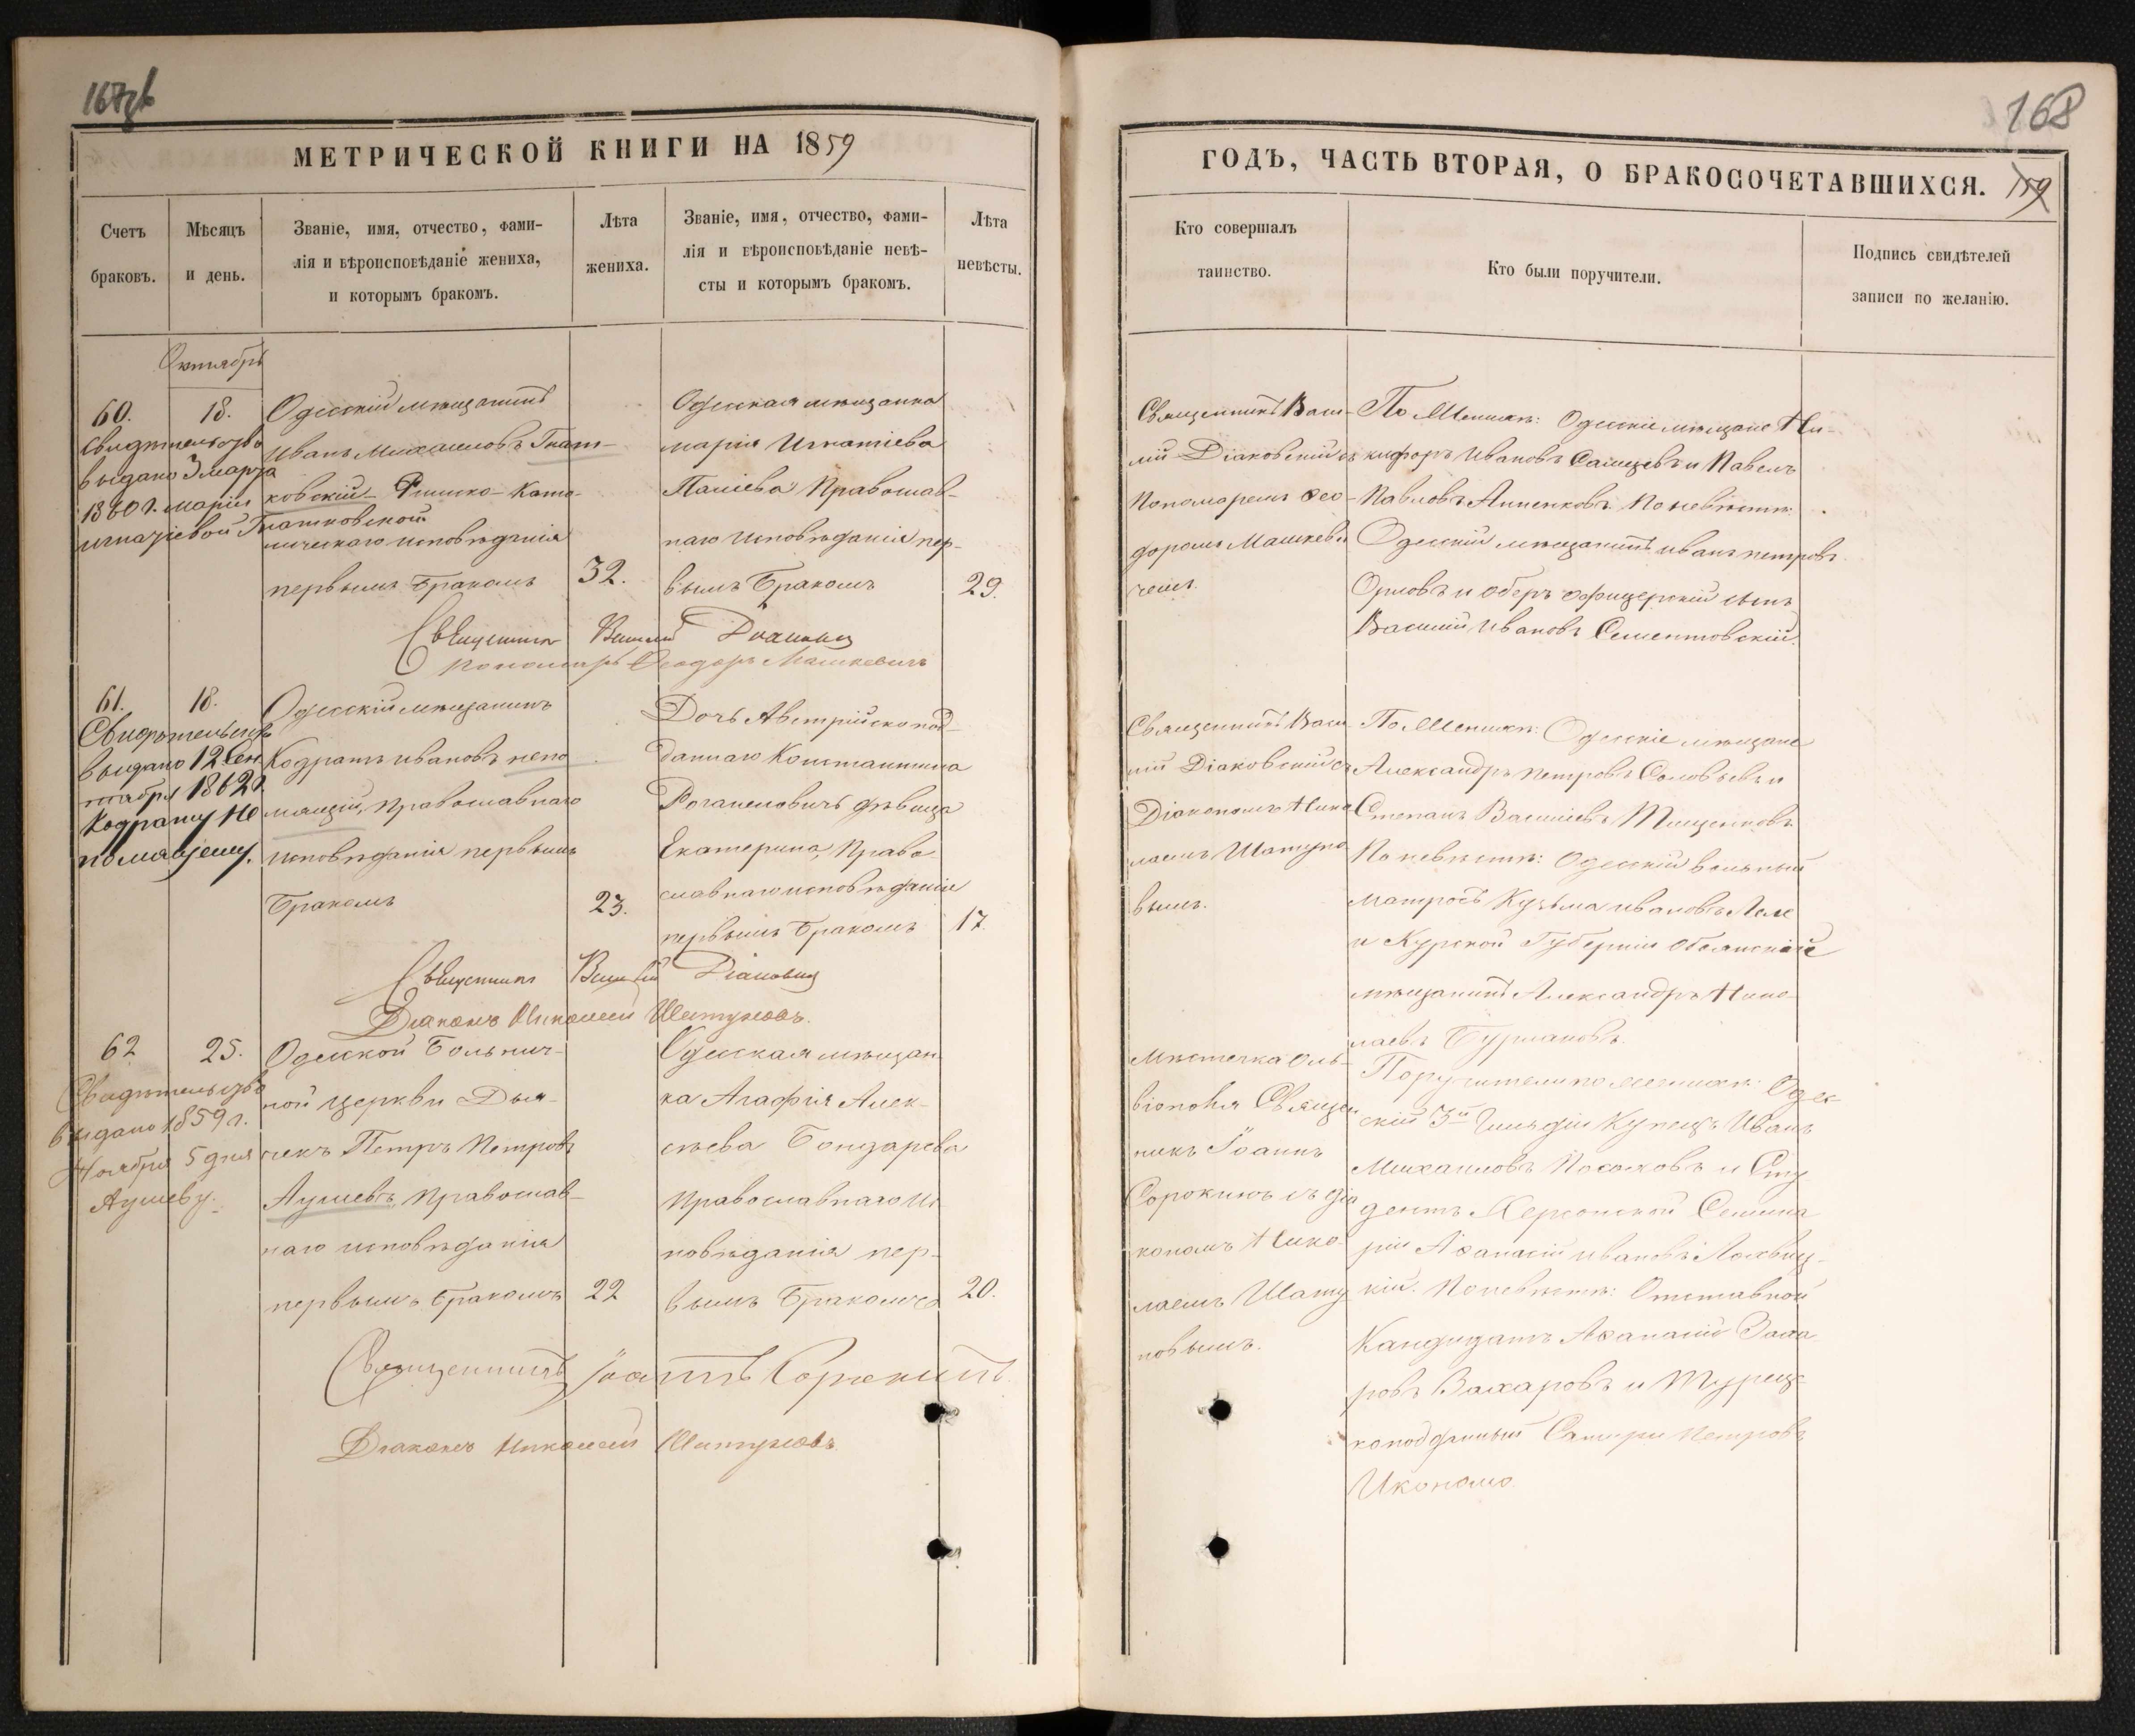 168
МЕТРИЧЕСКОЙ КНИГИ НА 1859
ГОДЪ, ЧАСТЬ ВТОРАЯ, О БРАКОСОЧЕТАВШИХСЯ.
159
Счетъ
браковъ.
Мѣсяцъ
и день.
Званіе, имя, отчество, фами-
лія и вѣроисповѣданіе жениха,
и которымъ бракомъ.
Лѣта
жениха.
Званіе, имя, отчество, фами-
лія и вѣроисповѣданіе невѣ-
сты и которымъ бракомъ.
Лѣта
невѣсты.
Кто совершалъ
таинство.
Кто были поручители.
Подпись свидѣтелей
записи по желанію.
Октябрь
60.
Свидѣтельство
выдано 3 марта
1860 г. маріи
игнатіевой Гнатковской
18.
Одесскій мѣщанинъ
Иванъ Михаиловъ Гнат-
ковскій Римско-Като-
лическаго исповѣданія
первымъ бракомъ
32.
Одесская мѣщанка
марія Игнатіева
Православ-
наго исповѣданія пер-
вымъ бракомъ
29.
Священникъ Васи-
лій Діаковскій съ
Пономаремъ Ѳео-
доромъ Машкеви
чемъ.
По Женихѣ: Одесскіе мѣщане Ни-
кифоръ Ивановъ и Павелъ
Павловъ Анненковъ. По невѣстѣ:
Одесскій мѣщанинъ иванъ петровъ
Орловъ и Оберъ офицерскій сынъ
Василій Ивановъ Сементовскій.
Священникъ Василій Діаковскій
пономарь Ѳеодоръ Машкевичъ
61.
Свидѣтельство
выдано 12 Сен
тября 1862 г.
Кодрату Не
помающему.
18.
Одесскій мѣщанинъ
Кодратъ ивановъ непо
мящій, православнаго
исповѣданія первымъ
бракомъ
23.
Дочь Австрійскопод-
даннаго Константина
дѣвица
Екатерина, Право
славнаго исповѣданія
первымъ бракомъ
17.
Священникъ Васи
лій Діаковскій съ
Діакономъ Нико
лаемъ Шатуно
вымъ.
По Женихѣ: Одесскіе мѣщане
Александръ петровъ Соловьевъ и
Степанъ Василіевъ Тищенковъ.
По невѣстѣ: Одесскій вольный
матросъ Кузьма ивановъ
и Курской Губерніи Обоянскій
мѣщанинъ Александръ Нико-
лаевъ
Священникъ Василій Діаковскій
Діаконъ Николай Шатуновъ.
62
Свидѣтельство
выдано 1859 г.
Ноября 5 дня
25.
Одесской Больнич-
ной церкви Дья-
чекъ Петръ Петровъ
Православ-
наго исповѣданія
первымъ бракомъ
22
Одесская мѣщан
ка Агафія Алек-
сѣева Бондарева
Православнаго ис
повѣданія пер-
вымъ бракомъ
20.
Мѣстечка Оль-
віополя Священ
никъ Іоаннъ
Сорокинъ съ діа
кономъ Нико-
лаемъ Шату
новымъ.
Поручители по женихѣ: Одес-
скій 3й Гильдіи Купецъ Иванъ
Михаиловъ и Сту
дентъ Херсонской Семина
ріи Аѳанасій ивановъ Лохвиц-
кій. По невѣстѣ: Отставной
Кандидатъ Аѳанасій Заха
ровъ Захаровъ и Турецк
коподданный петровъ
Икономо.
Священникъ Іоаннъ Сорокинъ.
Діаконъ Николай Шатуновъ.